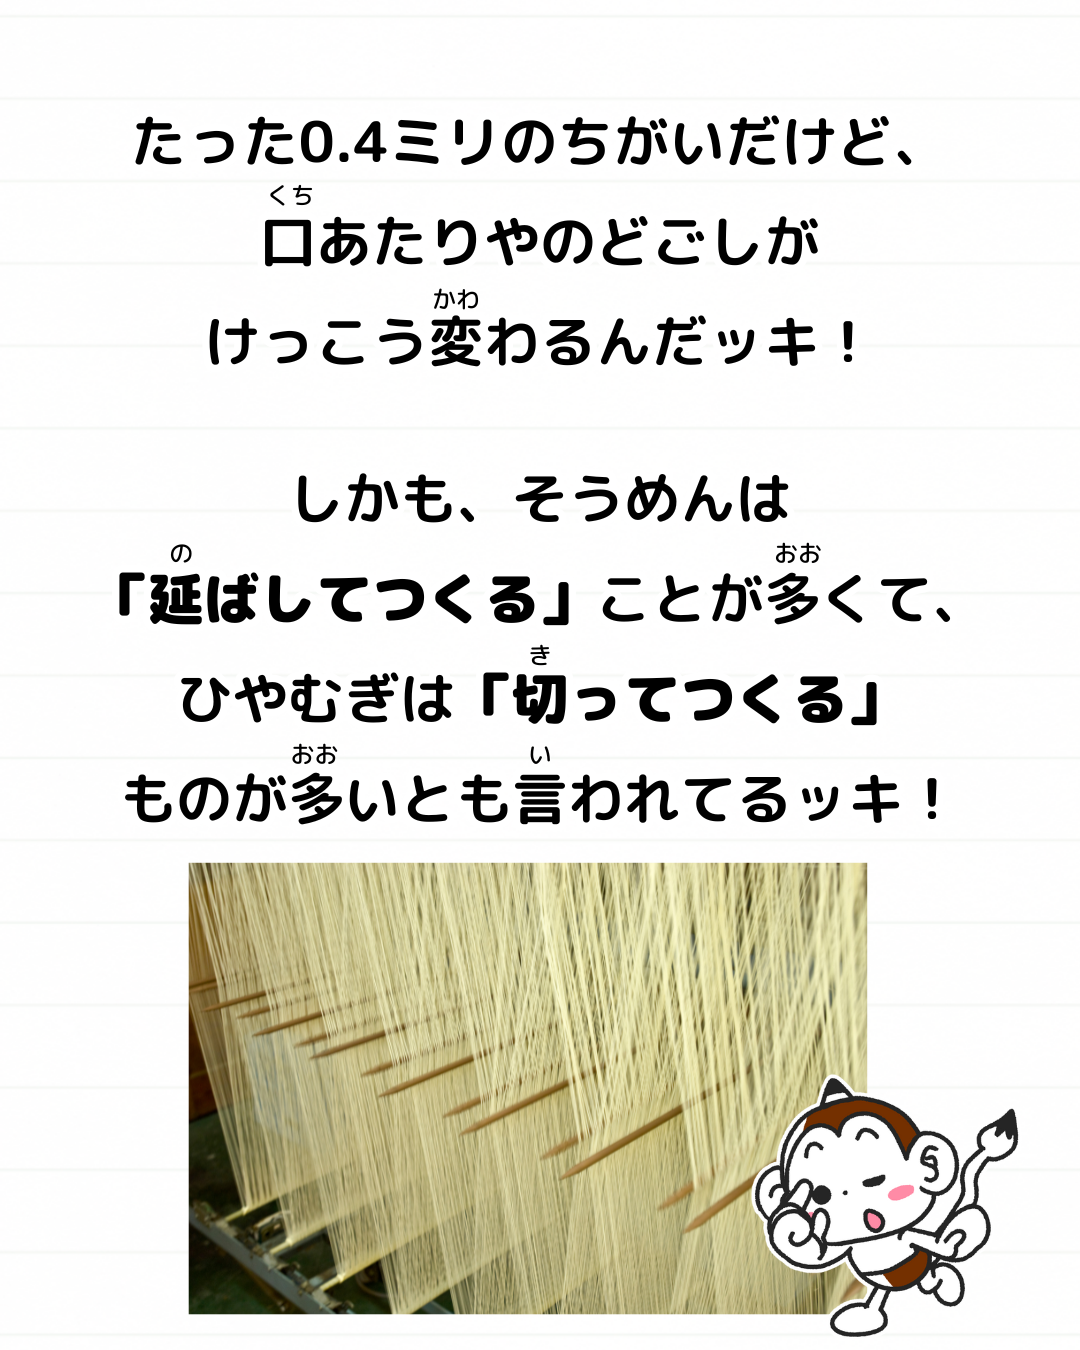 たった0.4ミリのちがいだけど、
くち
口あたりやのどごしが
かわ
けっこう変わるんだッキ！
しかも、そうめんは
の おお
「延ばしてつくる」ことが多くて、
き
ひやむぎは「切ってつくる」
おお い
ものが多いとも言われてるッキ！